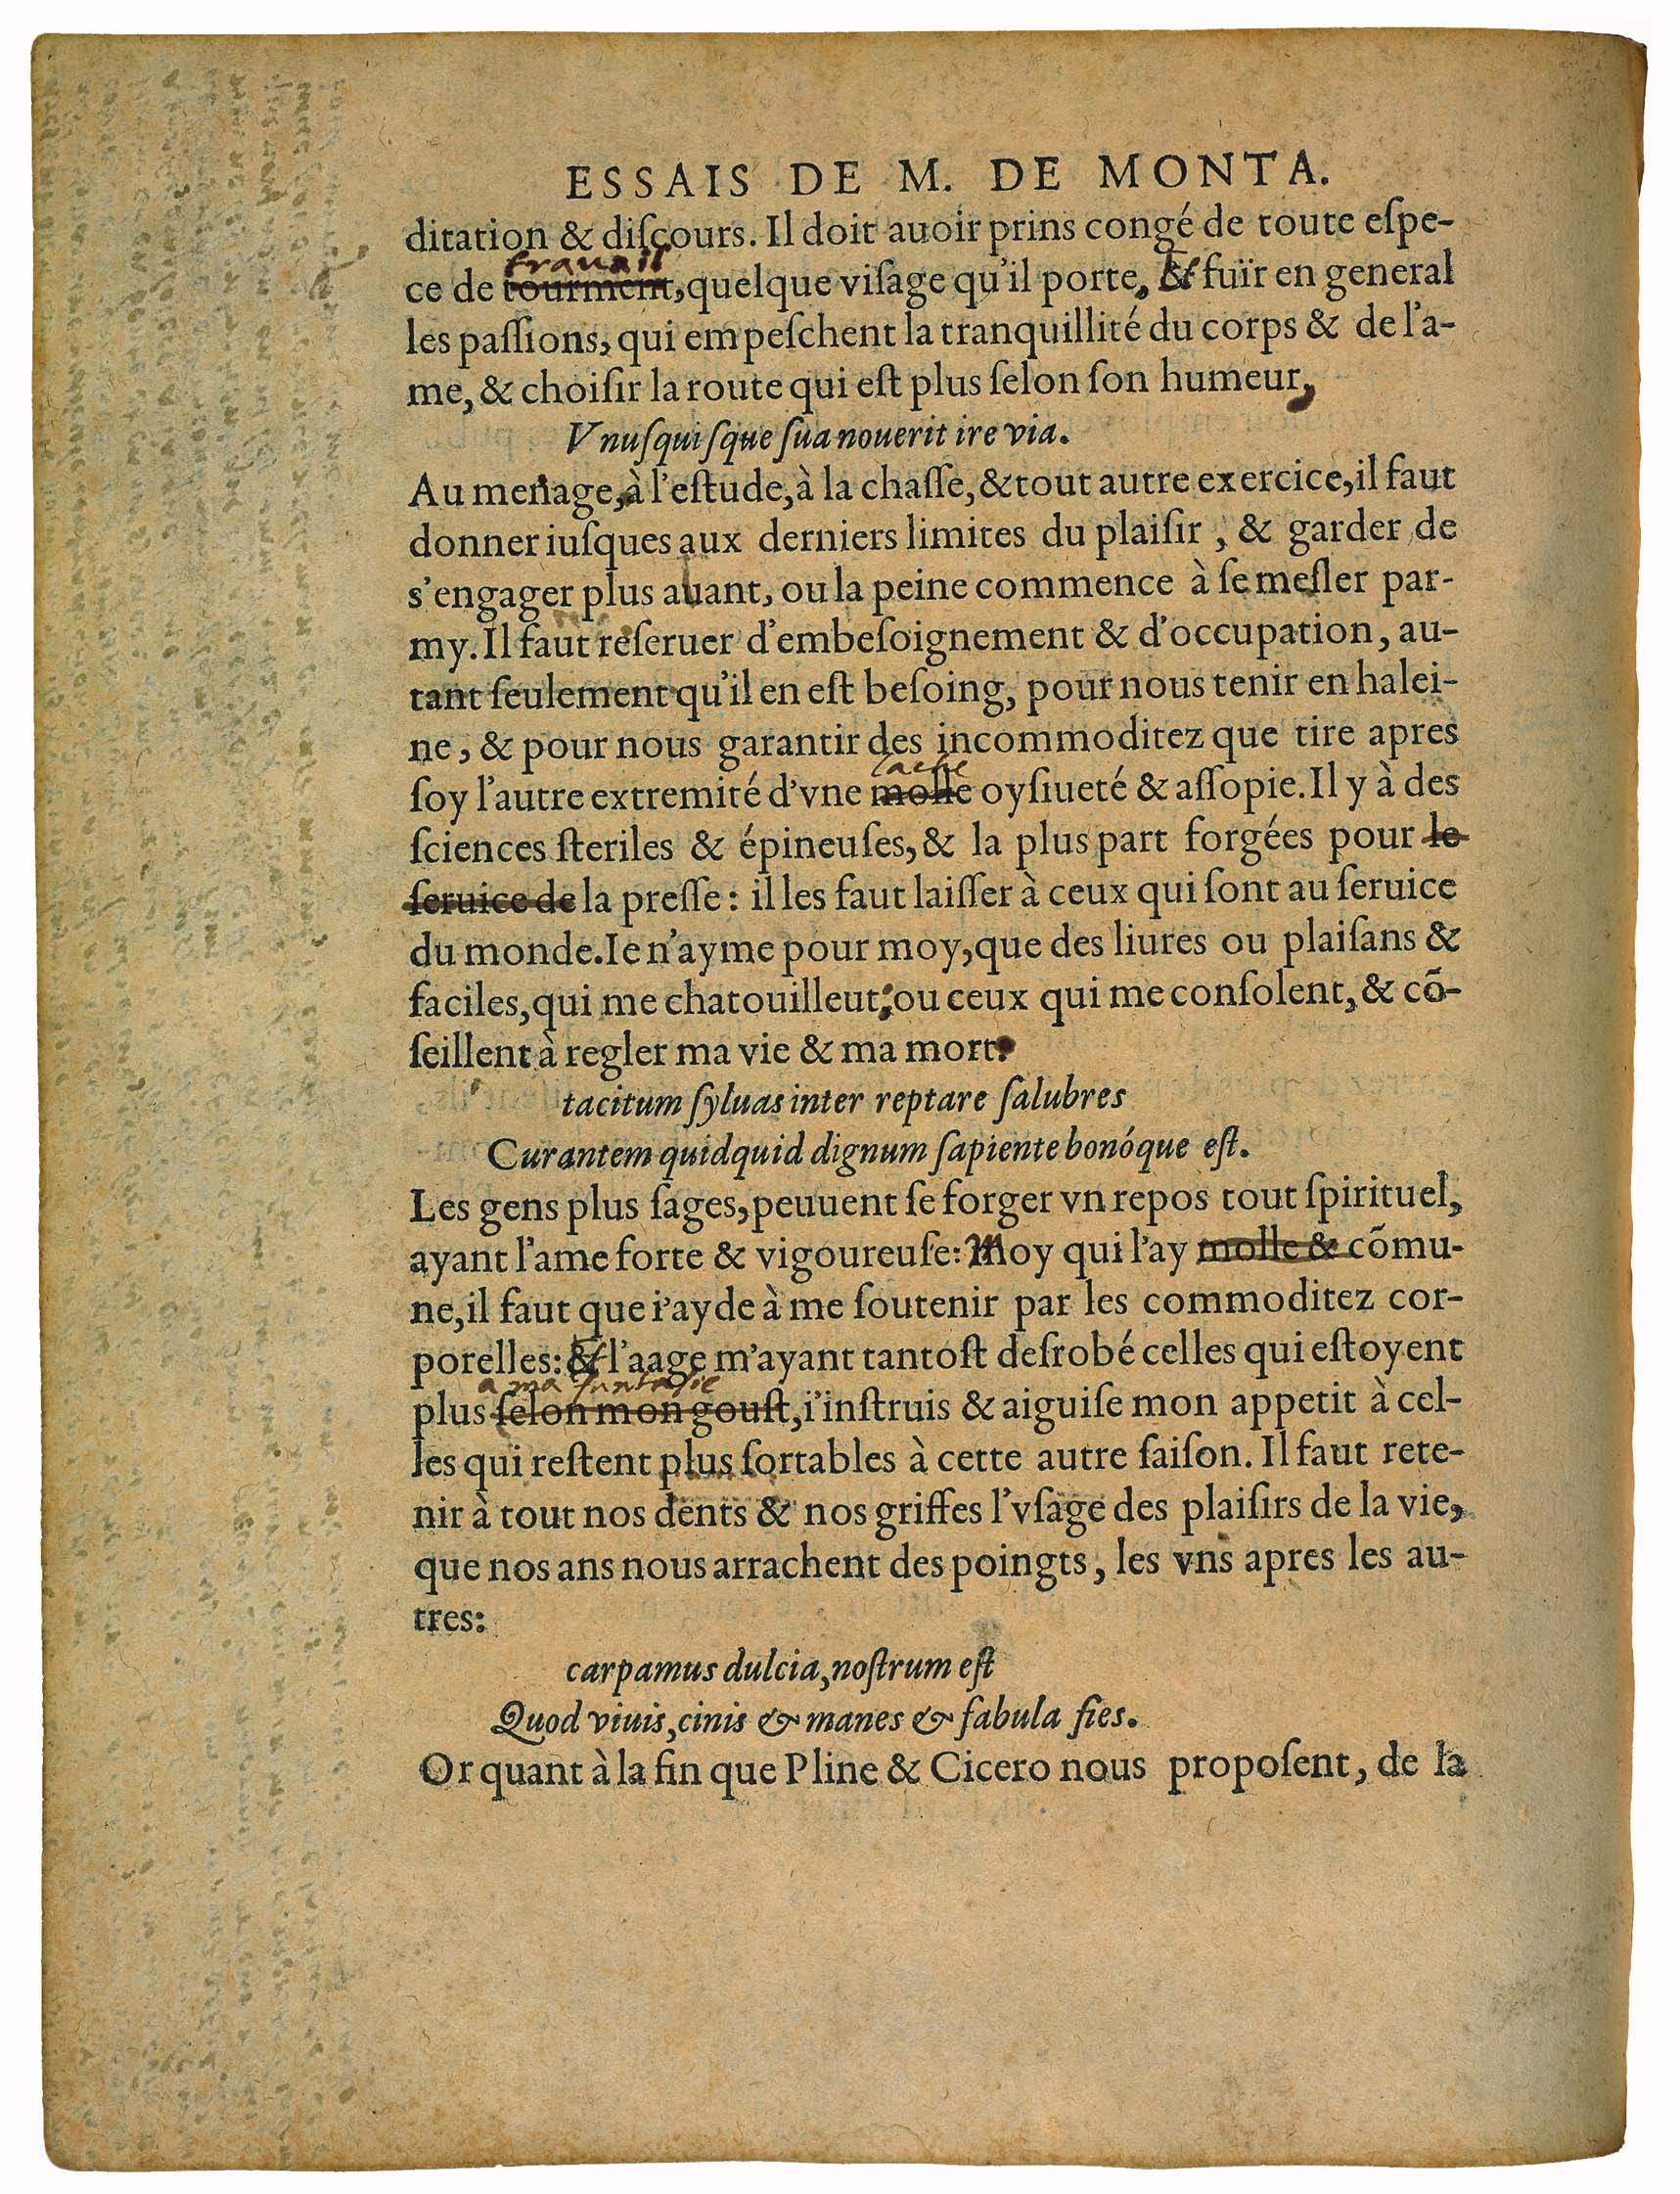 ESSAIS DE M. DE MONTA.
ditation & diſcours. Il doit auoir prins congé de toute eſpe-
trauail
ce de tourment, quelque viſage qu'il porte, & fuïr en general
les paſſions, qui empeſchent la tranquillité du corps & de l'a-
me, & choiſir la route qui eſt plus ſelon ſon humeur,
Vnuſquiſque ſua nouerit ire via.
Au menage, à l'eſtude, à la chaſſe, & tout autre exercice, il faut
donner iuſques aux derniers limites du plaiſir, & garder de
s'engager plus auant, ou la peine commence à ſe meſler par-
my. Il faut reſeruer d'embeſoignement & d'occupation, au-
tant ſeulement qu'il en eſt beſoing, pour nous tenir en halei-
ne, & pour nous garantir des incommoditez que tire apres
lache
ſoy l'autre extremité d'vne molle oyſiueté & aſſopie. Il y à des
ſciences ſteriles & épineuſes, & la plus part forgées pour le
ſeruice de la preſſe: il les faut laiſſer à ceux qui ſont au ſeruice
du monde. Ie n'ayme pour moy, que des liures ou plaiſans &
faciles, qui me chatouilleut; ou ceux qui me conſolent, & cõ-
ſeillent à regler ma vie & ma mort:
tacitum ſyluas inter reptare ſalubres
Curantem quidquid dignum ſapiente bonóque eſt.
Les gens plus ſages, peuuent ſe forger vn repos tout ſpirituel,
ayant l'ame forte & vigoureuſe: Moy qui l'ay molle & cõmu-
ne, il faut que i'ayde à me ſoutenir par les commoditez cor-
porelles: & l'aage m'ayant tantoſt deſrobé celles qui eſtoyent
a ma fantasie
plus ſelon mon gouſt, i'inſtruis & aiguiſe mon appetit à cel-
les qui reſtent plus ſortables à cette autre ſaiſon. Il faut rete-
nir à tout nos dents & nos griffes l'vſage des plaiſirs de la vie,
que nos ans nous arrachent des poingts, les vns apres les au-
tres:
carpamus dulcia, noſtrum eſt
Quod viuis, cinis & manes & fabula fies.
Or quant à la fin que Pline & Cicero nous propoſent, de la